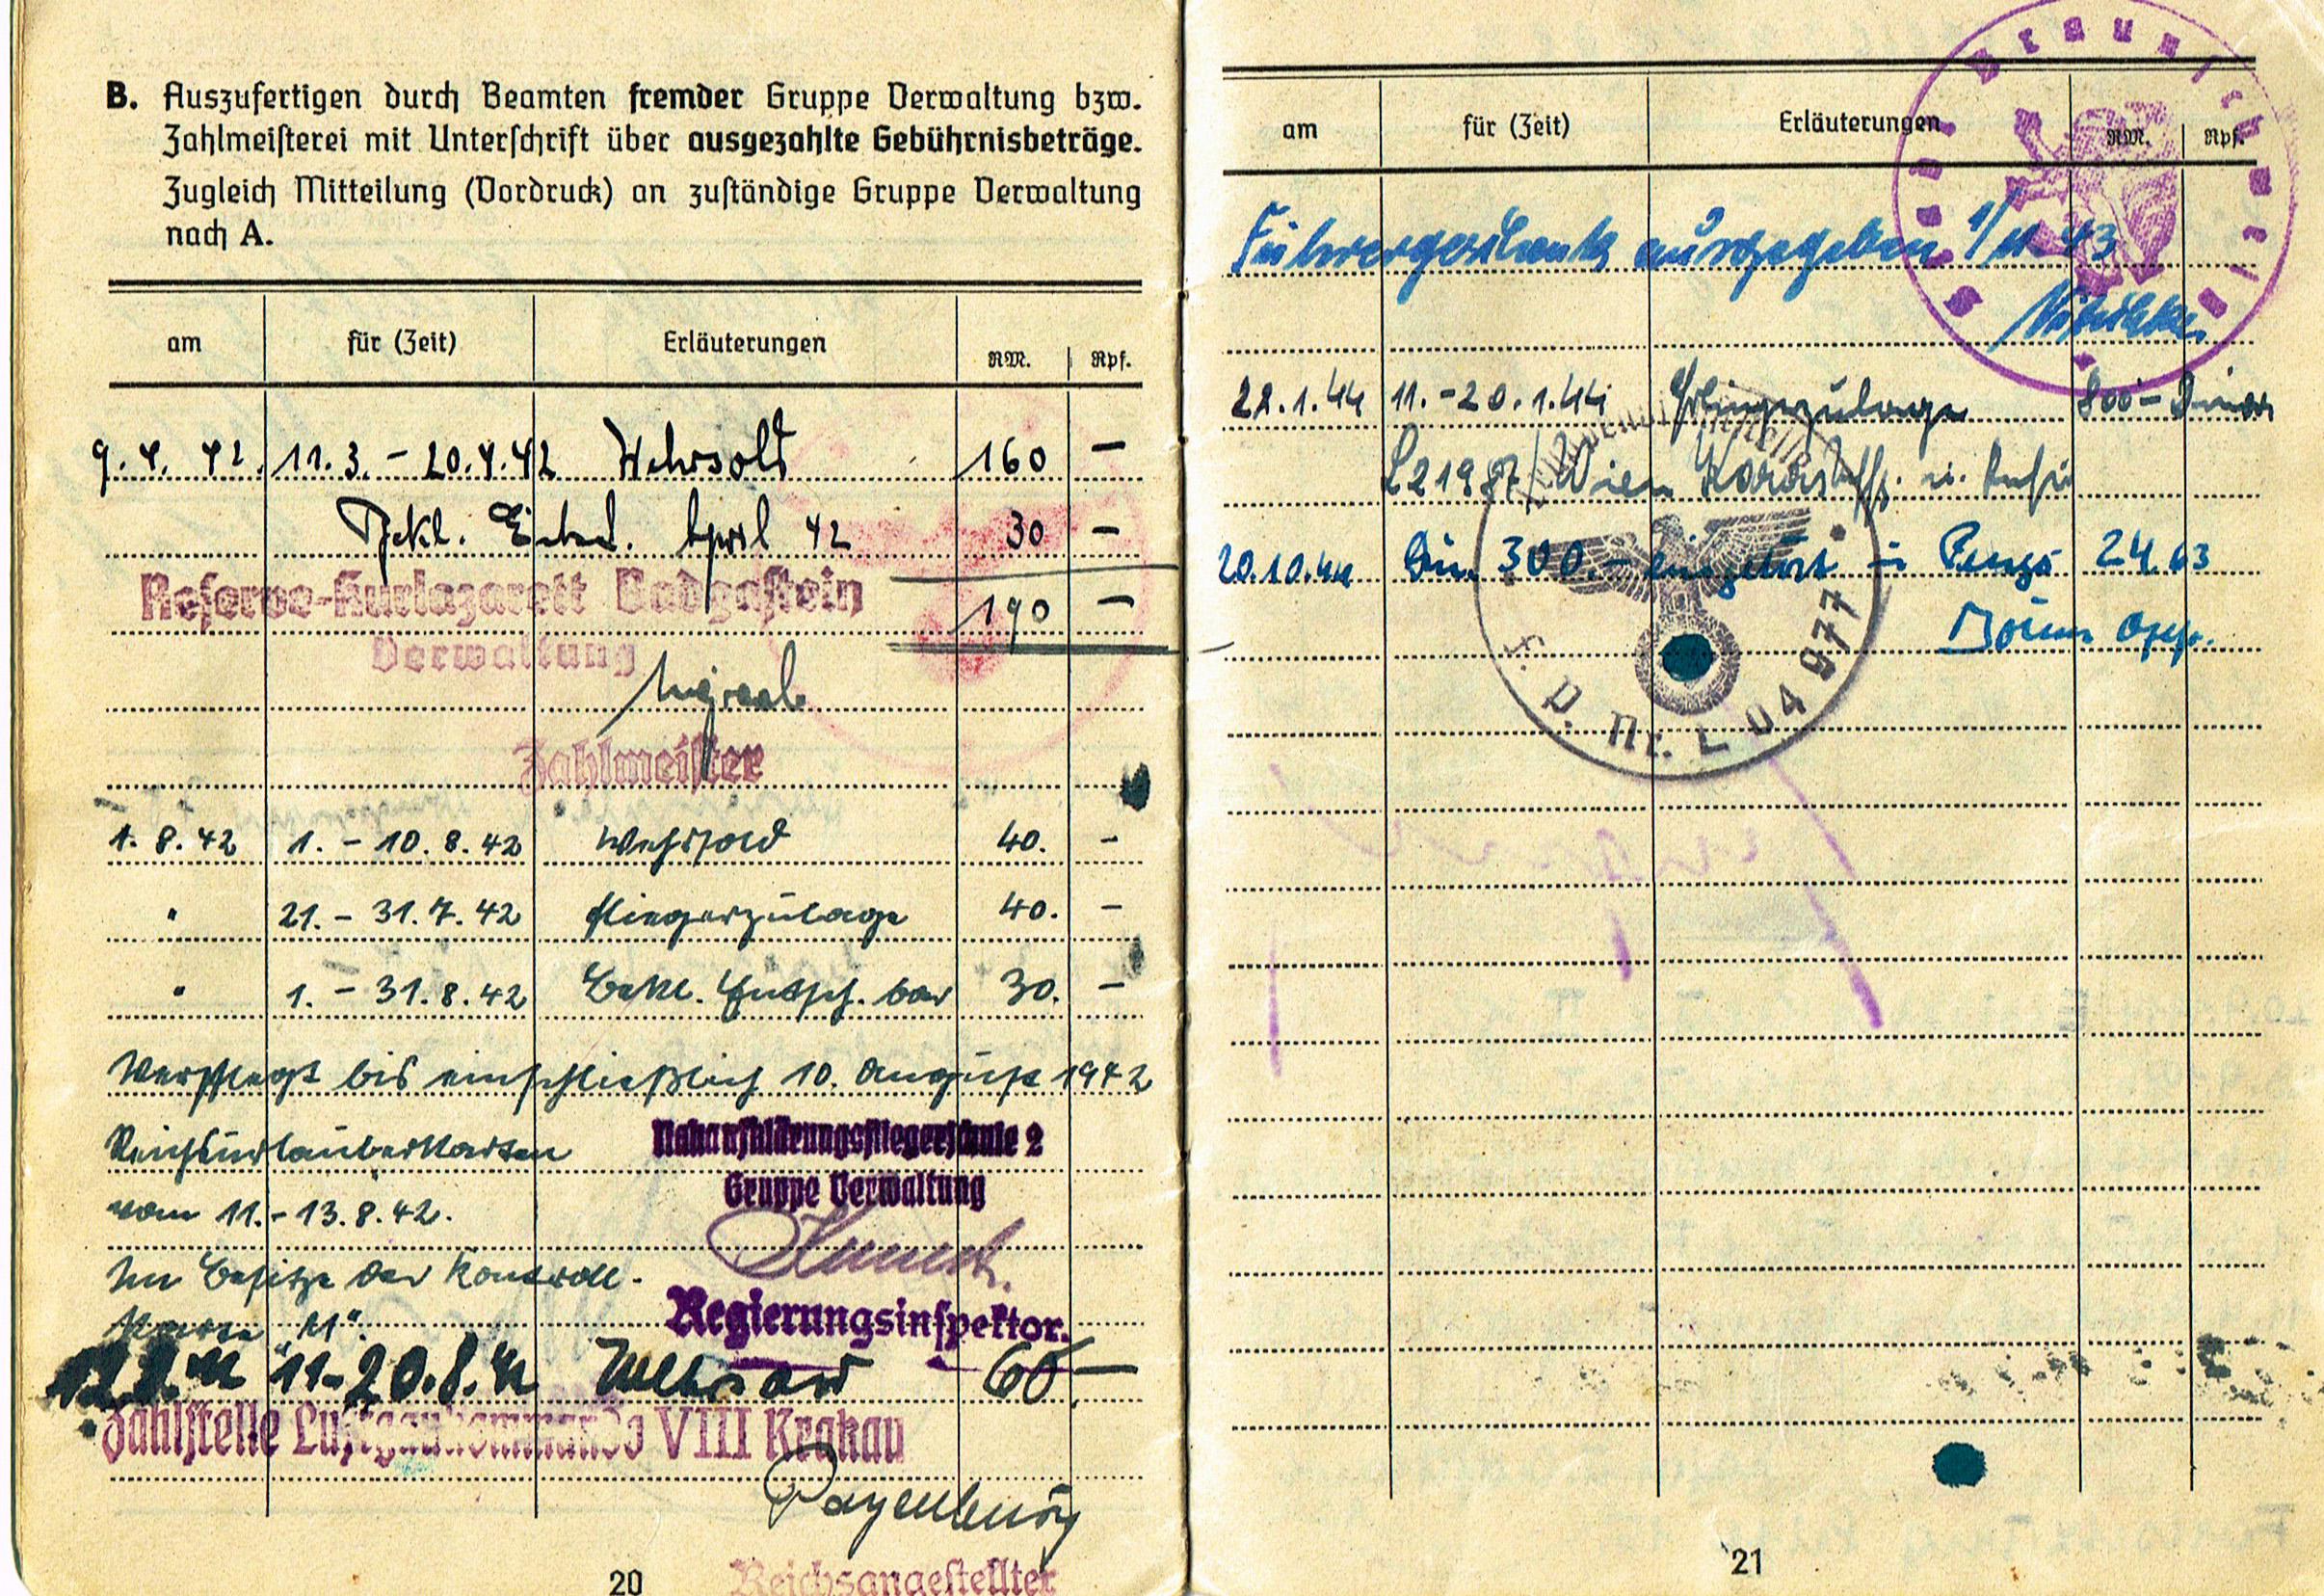 B. Auszufertigen durch Beamten fremder Gruppe Verwaltung bzw.
Zahlmeisterei mit Unterschrift über ausgezahlte Gebührnisbeträge.
Zugleich Mitteilung (Vordruck) an zuständige Gruppe Verwaltung
nach A.
am für (Zeit) Erläuterungen RM. Rpf.
9. 4. 42. 11.3. - 20.4.42 Wehrsold 160 -
Bekl. April 42 30 -
Reserve-Kurlazarett Badgastein
190 -
Verwaltung
Zahlmeister
1. 8. 42 1. - 10. 8. 42 Wehrsold 40. -
" 21. - 31. 7. 42 Fliegerzulage 40. -
" 1. - 31. 8. 42 Bekl. Entsch. bar 30. -
Verpflegt bis einschließlich 10. August 1942
Reichsurlauberkarten
Nahaufklärungsfliegerschule 2
Gruppe Verwaltung
vom 11. - 13. 8. 42.
Im Besitze der Kontroll-
karte "M".
Regierungsinspektor.
11-20.8.42 Wehrsold 60 -
Zahlstelle Luftgaukommando VIII Krakau
Reichsangestellter
20
am für (Zeit) Erläuterungen RM. Rpf.
Führergeschenk ausgegeben
22.1.44 11. - 20.1.44 Fliegerzulage 800 - Dinar
L21987/Wien
20.10.44 Din. 300.- in Pengö 24.63
F. P. Nr. L 04977
21